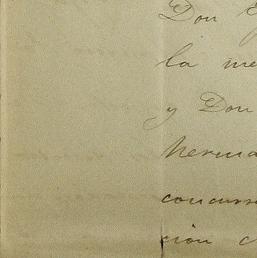 Don
la me
y Don
herma
concurr
cion c